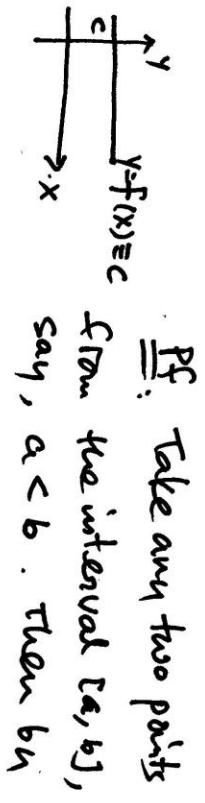 y
c
y=f(x)≡c
x
Pf: Take any two points
from the interval [a, b],
say, a < b. Then by